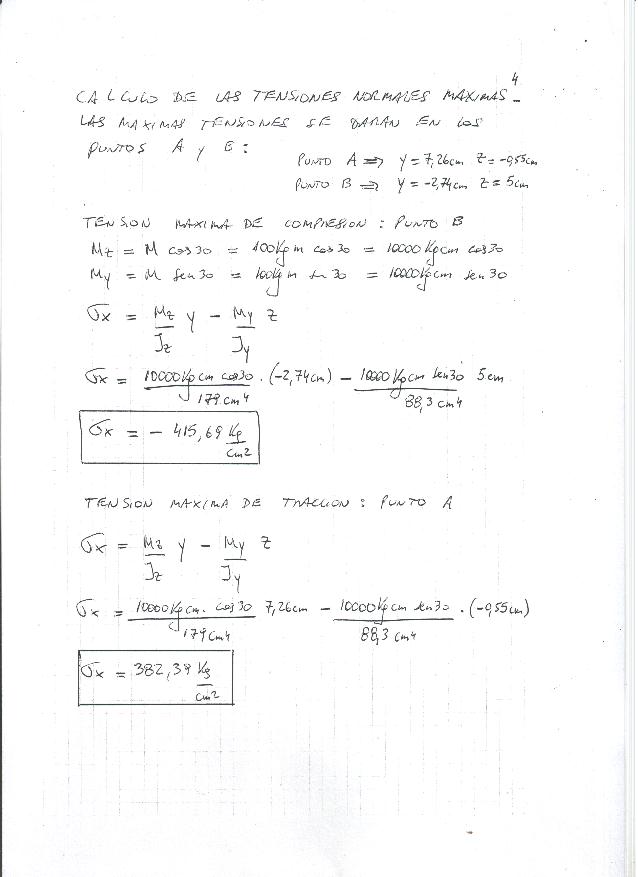 4
CALCULO DE LAS TENSIONES NORMALES MAXIMAS.
LAS MAXIMAS TENSIONES SE DARAN EN LOS
PUNTOS A y B:
PUNTO A => y = 7,26cm z = -0,55cm
PUNTO B => y = -2,74cm z = 5cm
TENSION MAXIMA DE COMPRESION : PUNTO B
Mz = M cos 30 = 100Kg m cos 30 = 10000 Kg cm cos 30
My = M sen 30 = 100Kg m sen 30 = 10000 Kg cm sen 30
σx = Mz/Jz y - My/Jy z
σx = 10000 Kg cm cos 30/179 cm4 . (-2,74 cm) - 10000 Kg cm sen 30/88,3 cm4 5 cm
σx = - 415,69 Kg/cm2
TENSION MAXIMA DE TRACCION : PUNTO A
σx = Mz/Jz y - My/Jy z
σx = 10000 Kg cm. cos 30/179 cm4 7,26cm - 10000 Kg cm sen 30/88,3 cm4 . (-0,55 cm)
σx = 382,39 Kg/cm2